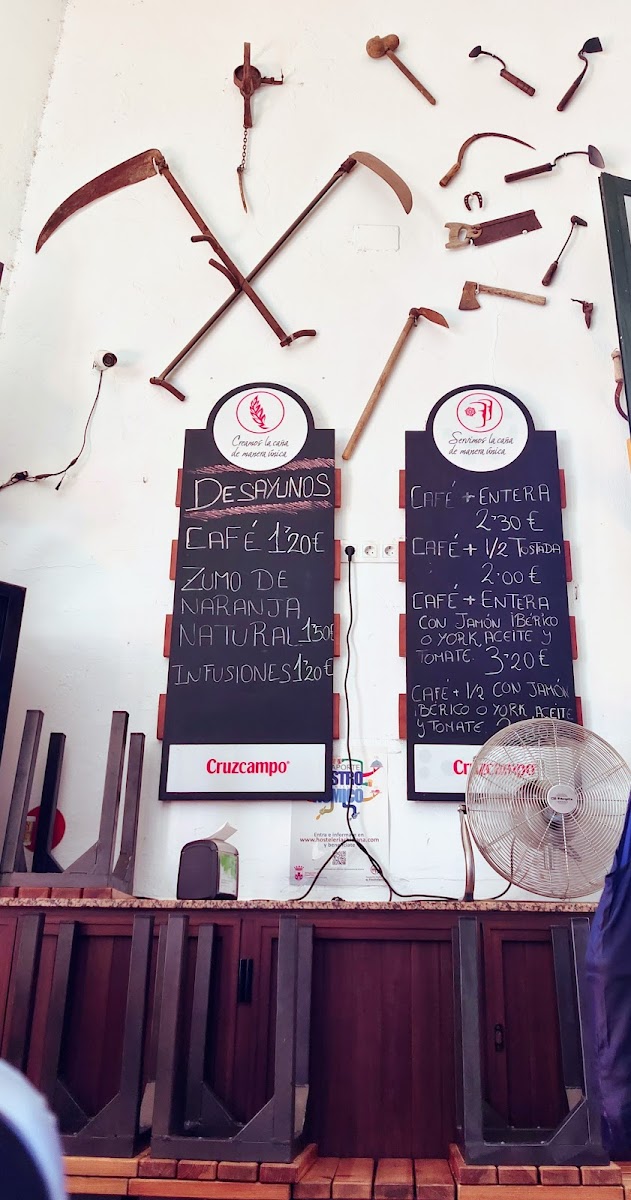 Creamos la caña
de manera única
DESAYUNOS
CAFÉ 1'20€
ZUMO DE
NARANJA
NATURAL 1'50€
INFUSIONES 1'20€
Cruzcampo
Servimos la caña
de manera única
CAFÉ + ENTERA
2'30 €
CAFÉ + 1/2 TOSTADA
2'00 €
CAFÉ + ENTERA
CON JAMÓN IBÉRICO
O YORK, ACEITE Y
TOMATE. 3'20 €
CAFÉ + 1/2 CON JAMÓN
IBÉRICO O YORK, ACEITE
Y TOMATE.
Entra e infórmate en
y benefíciate